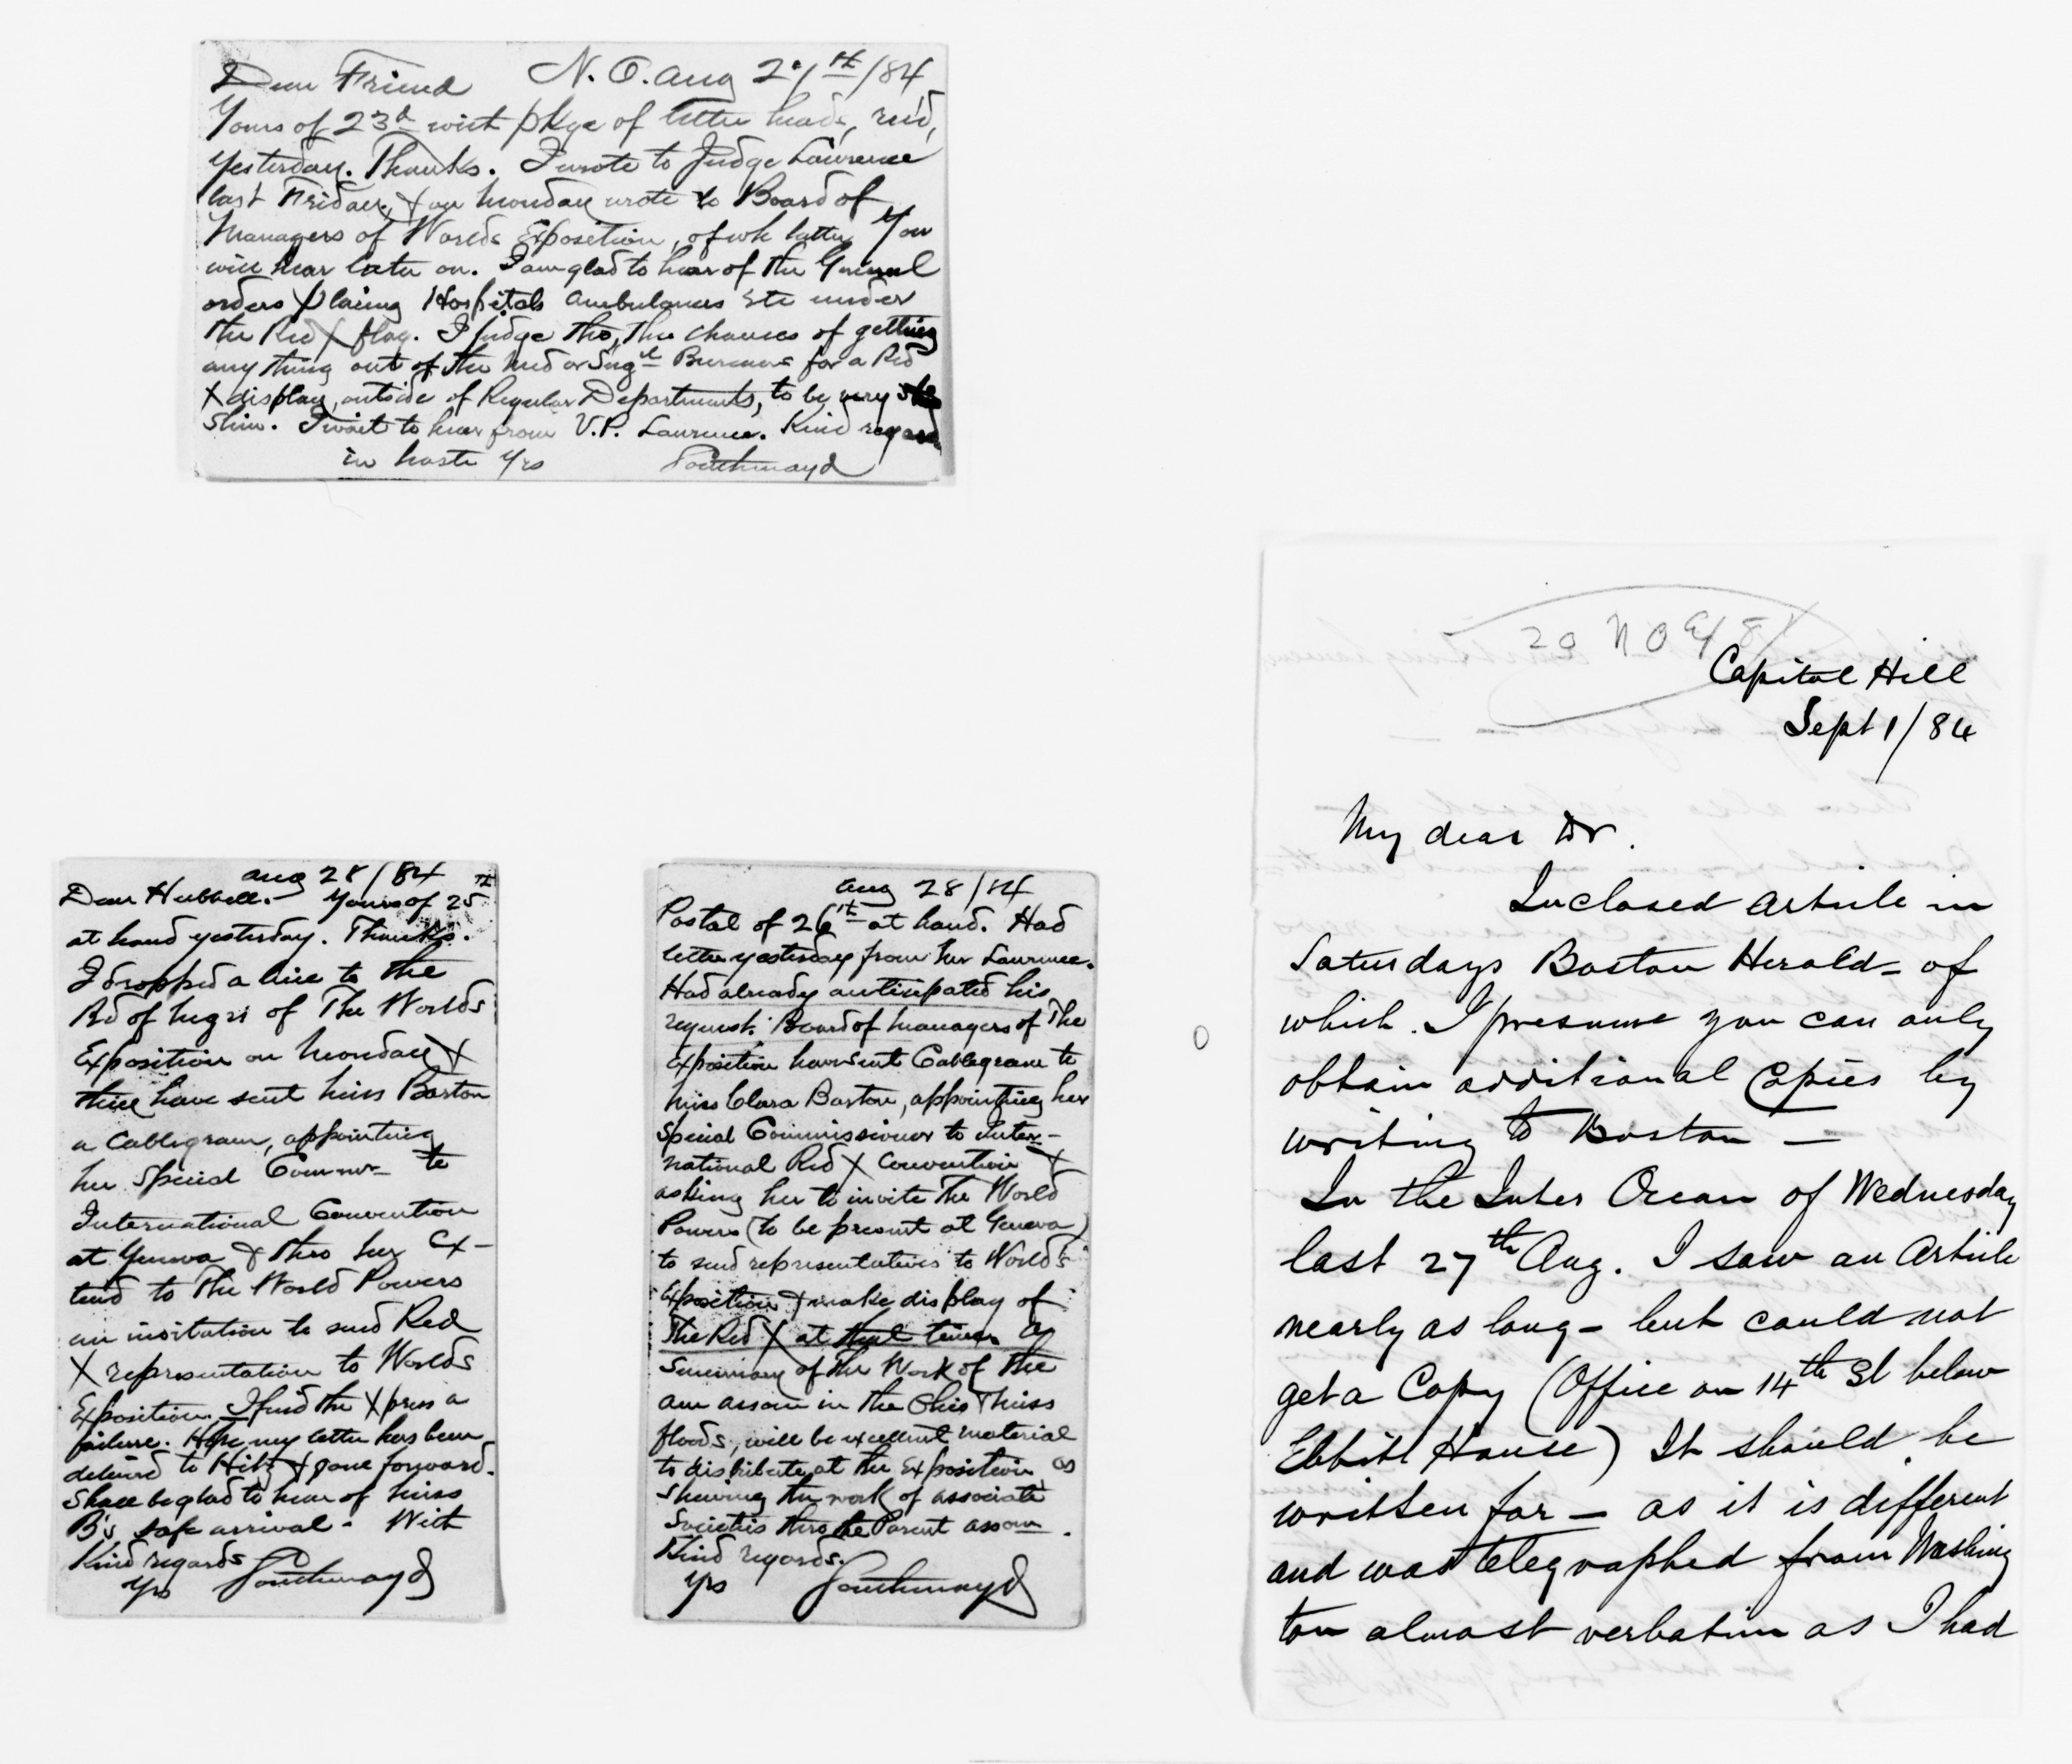 Dear Friend N. O. Aug 27th/84
Yours of 23d with pkge of letter heads, rec'd,
yesterday. Thanks. I wrote to Judge Lawrence
last Friday, & on Monday wrote to Board of
Managers of Worlds Exposition, of wh latter You
will hear later on. I am glad to hear of the General
orders placing Hospitals Ambulances Etc under
the Red X flag. I judge tho, the chances of getting
any thing out of the Med or Surgl Bureaus for a Red
X display, outside of Regular Departments, to be very
Slim. I wait to hear from V.P. Lawrence. Kind regards
in haste Yrs Southmayd
Aug 28/84
Dear Hubbell.- Yours of 25th
at hand yesterday. Thanks.
I dropped a line to the
Bd of Mgrs of The Worlds
Exposition on Monday &
they have sent Miss Barton
a Cablegram, appointing
her Special Commr- to
International Convention
at Geneva & thro her Ex-
tend to The World Powers
an invitation to send Red
X representation to Worlds
Exposition. I find the Xpress a
failure. Hope my letter has been
delivered to Hitz & gone forward.
Shall be glad to hear of Miss
B's safe arrival. With
Kind regards
Yrs Southmayd
Aug 28/84
Postal of 26th at hand. Had
letter yesterday from Mr Lawrence.
Had already anticipated his
request. Board of Managers of The
Exposition have sent Cablegram to
Miss Clara Barton, appointing her
Special Commissioner to Inter-
national Red X Convention &
asking her to invite The World
Powers (to be present at Geneva)
to send representatives to World's
Exposition & make display of
The Red X at that time. A
Summary of the Work of the
Am assocn in the Ohio & Miss
floods, will be excellent material
to distribute at the Exposition, as
showing the work of associate
Societies thro the Parent assocn.
Kind regards.
Yrs Southmayd
Capitol Hill
Sept 1/84
My dear Dr.
Inclosed Article in
Saturdays Boston Herald - of
which. I presume you can only
obtain additional Copies by
writing to Boston —
In the Inter Ocean of Wednesday
last 27th Aug. I saw an Article
nearly as long - but could not
get a Copy (Office on 14th St below
Ebbitt House) It should be
written for - as it is different
and was telegraphed from Washing
ton almost verbatim as I had